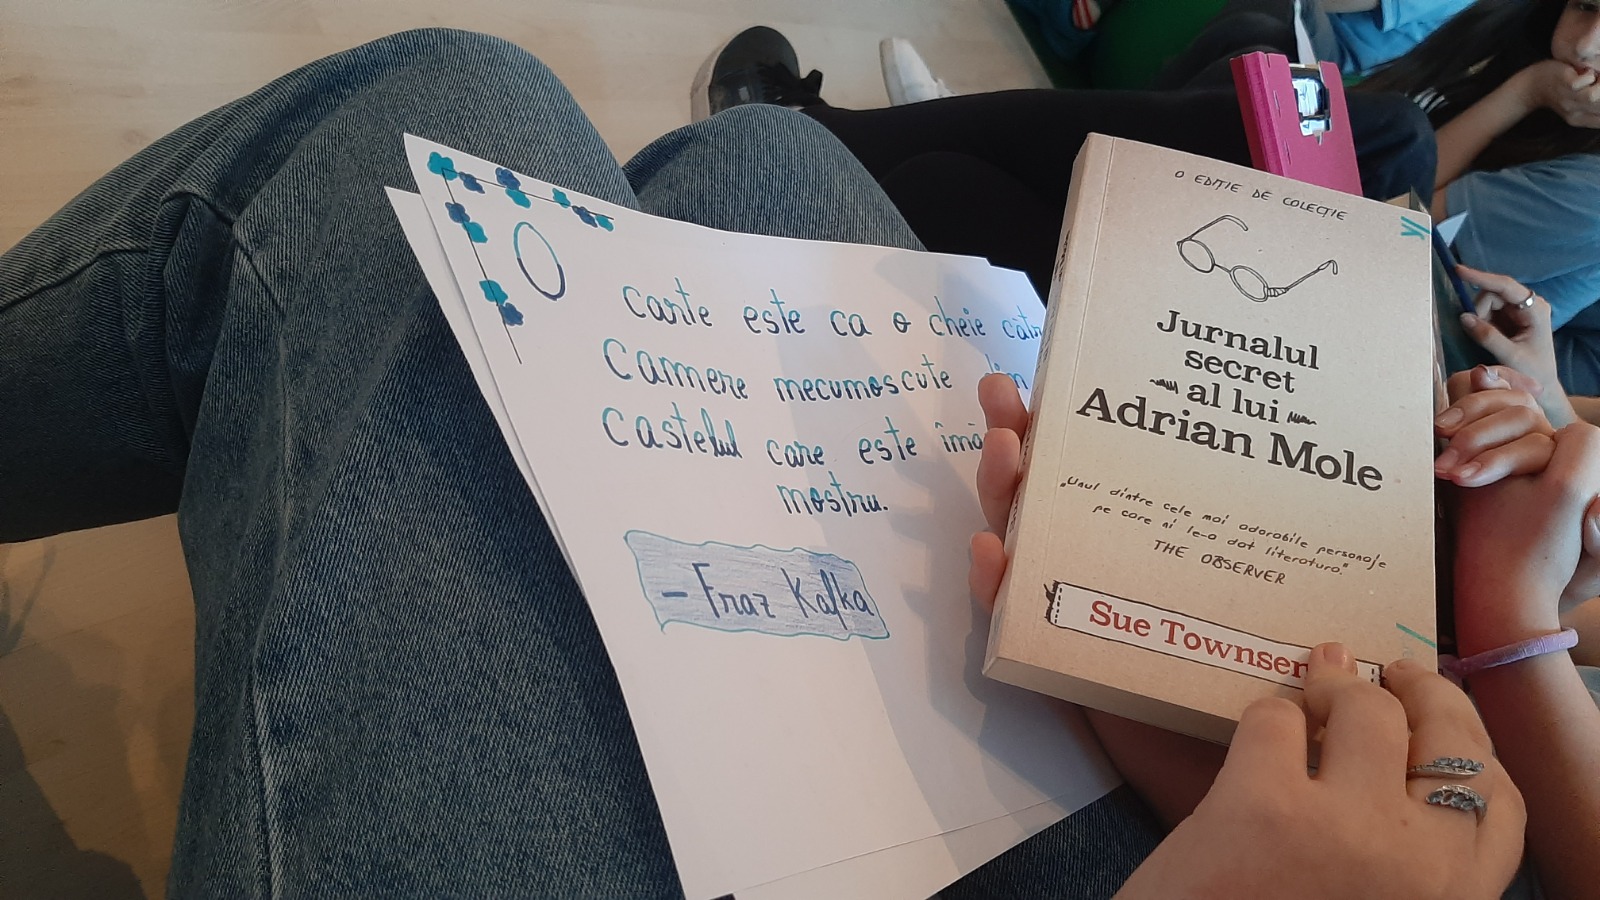 O
carte este ca o cheie
Camere mecumoscute dim
Castelul care este
mostru.
– Fraz Kafka
O EDIȚIE DE COLECȚIE
Jurnalul
secret
al lui
Adrian Mole
„Unul dintre cele mai adorabile personaje
pe care ni le-a dat literatura."
THE OBSERVER
Sue Townsen